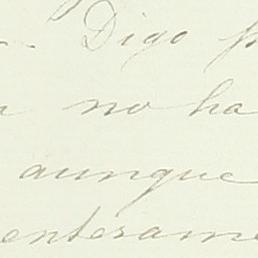 Digo
no ha
aunque
enterame